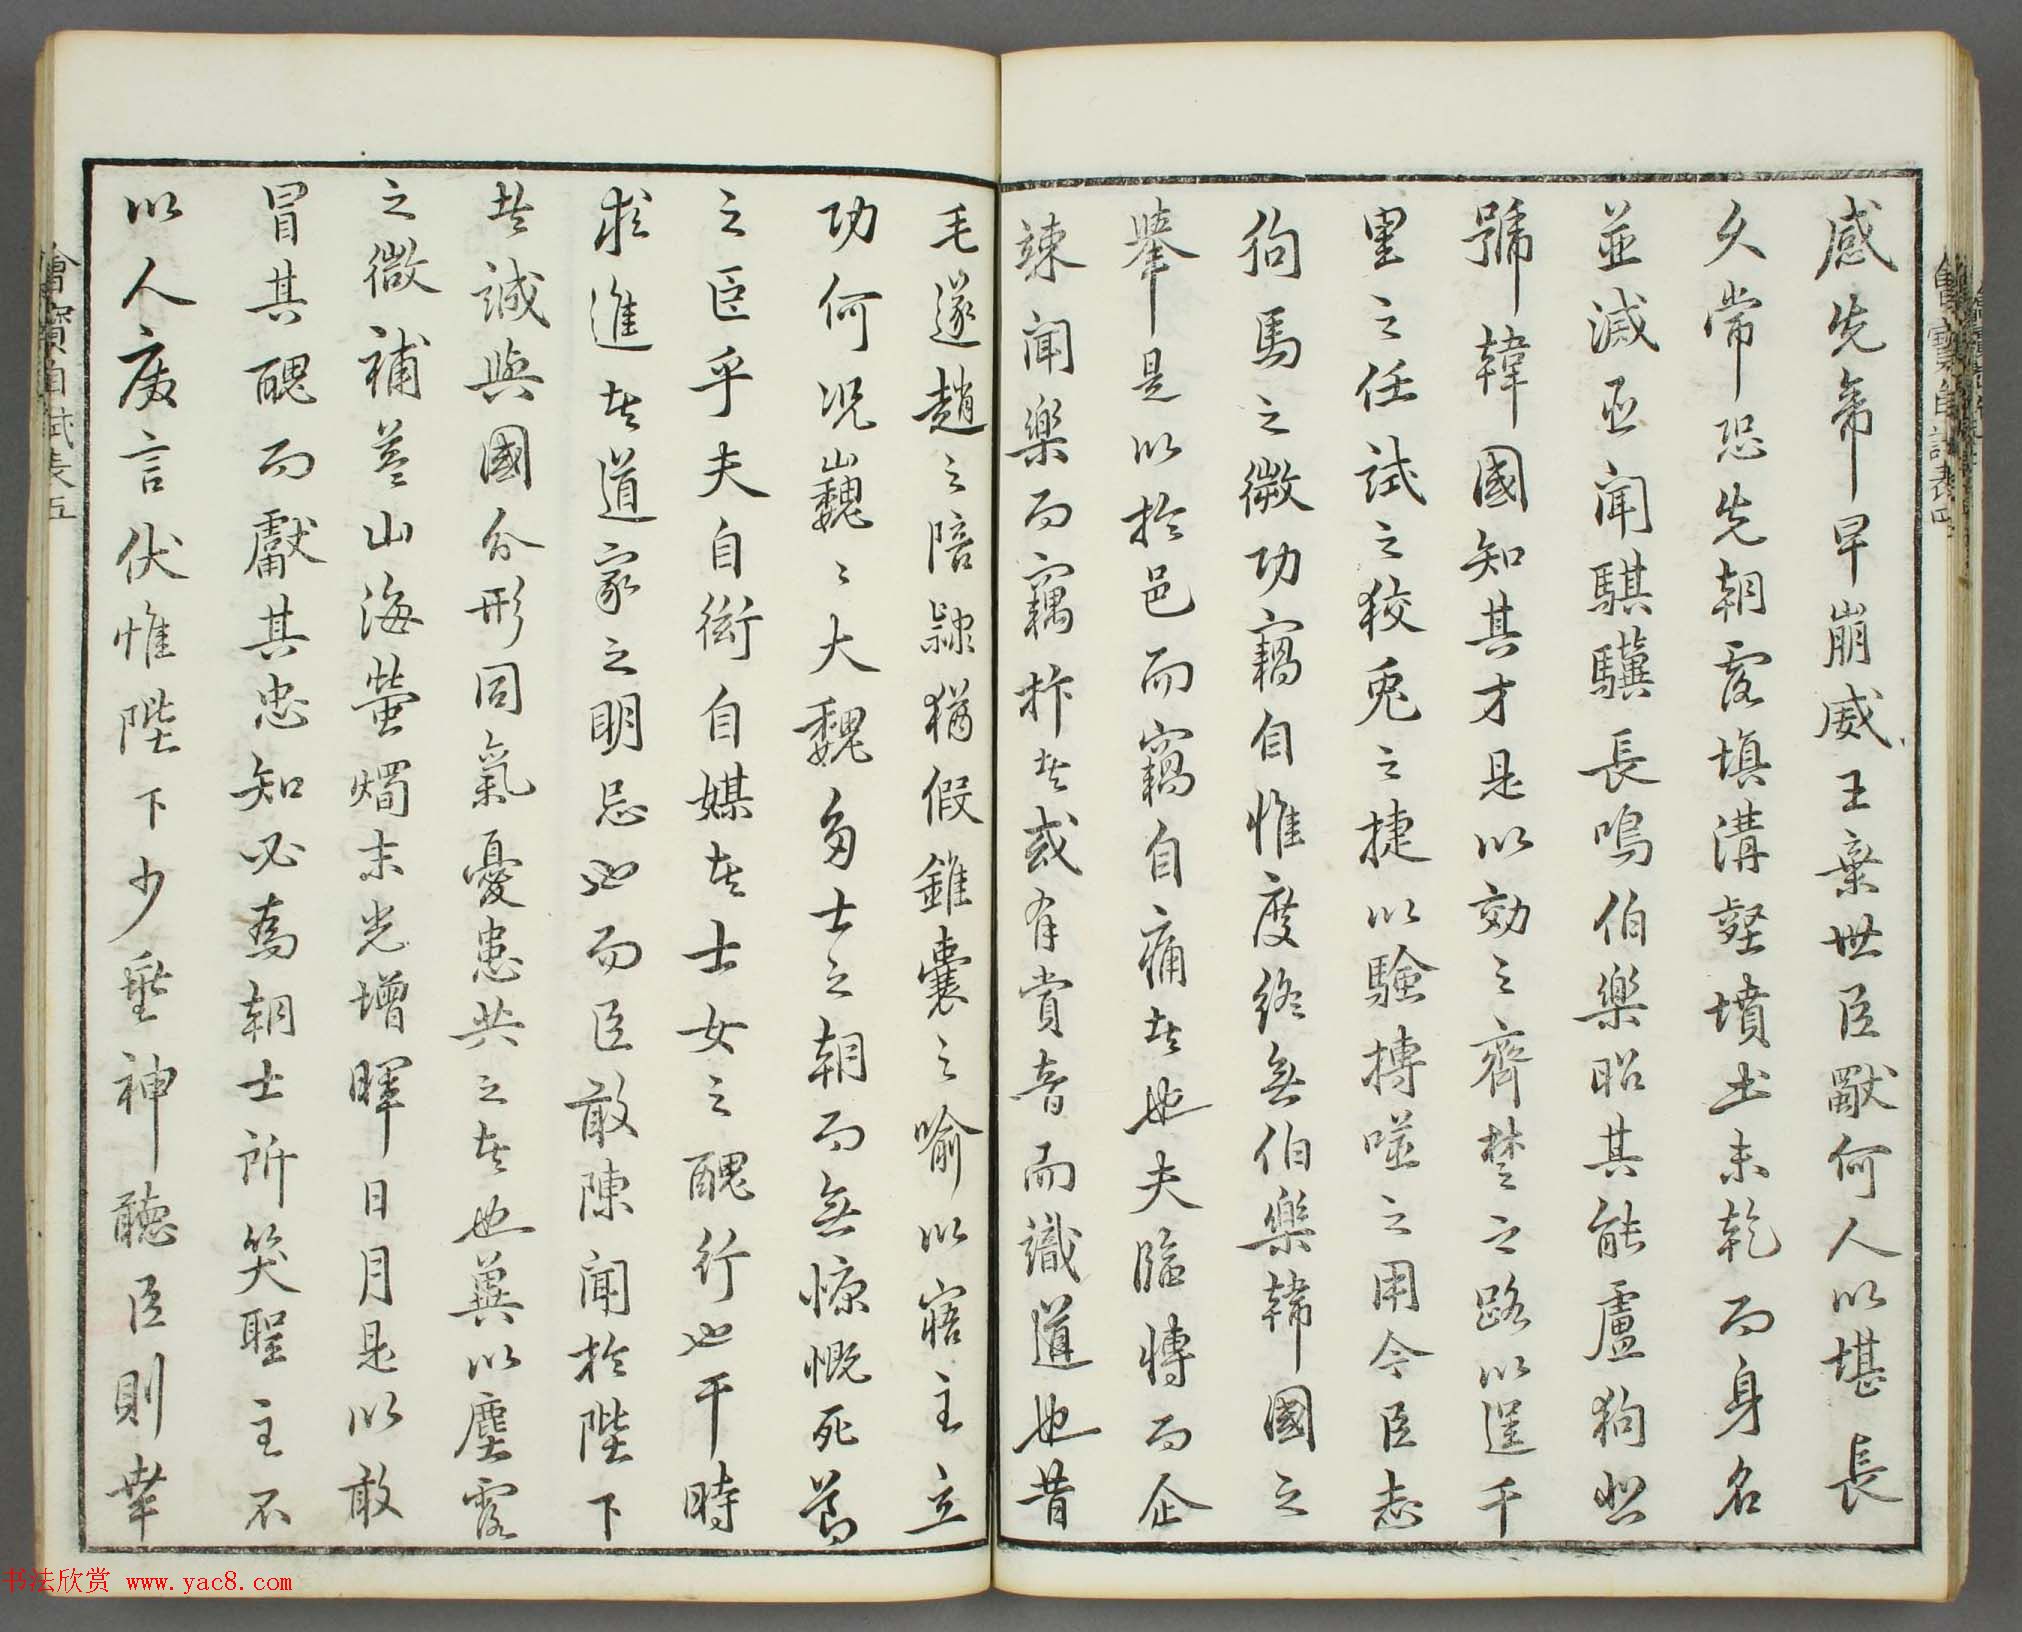 感先帝早崩威王棄世臣獨何人以堪長
久常恐先朝露填溝壑墳土未乾而身名
並滅臣聞騏驥長鳴伯樂昭其能盧狗悲
號韓國知其才是以効之齊楚之路以逞千
里之任試之狡兔之捷以驗搏噬之用今臣志
狗馬之微功竊自惟度終無伯樂韓國之
舉是以於邑而竊自痛者也夫臨博而企
竦聞樂而竊抃者或有賞音而識道也昔
毛遂趙之陪隸猶假錐囊之喻以寤主立
功何況巍〻大魏多士之朝而無慷慨死難
之臣乎夫自衒自媒者士女之醜行也干時
求進者道家之明忌也而臣敢陳聞於陛下
者誠與國分形同氣憂患共之者也冀以塵露
之微補益山海螢燭末光增暉日月是以敢
冒其醜而獻其忠知必為朝士所笑聖主不
以人廢言伏惟陛下少垂神聽臣則幸
寶自試表五
书法欣赏 www.yac8.com